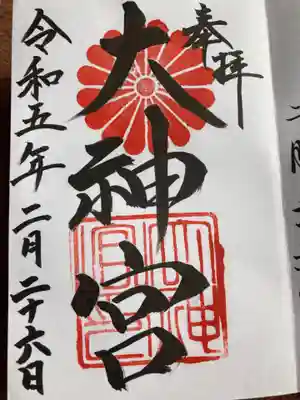 奉拝
大神宮
令和五年二月二十六日